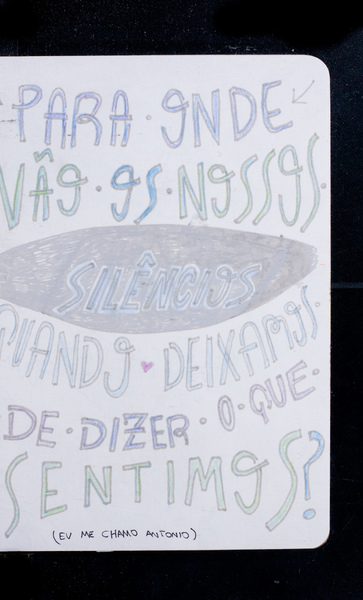 PARA · ONDE
VÃO · OS · NOSSOS ·
SILÊNCIOS
QUANDO ♥ DEIXAMOS ·
DE · DIZER · O · QUE ·
SENTIMOS?
(EU ME CHAMO ANTONIO)